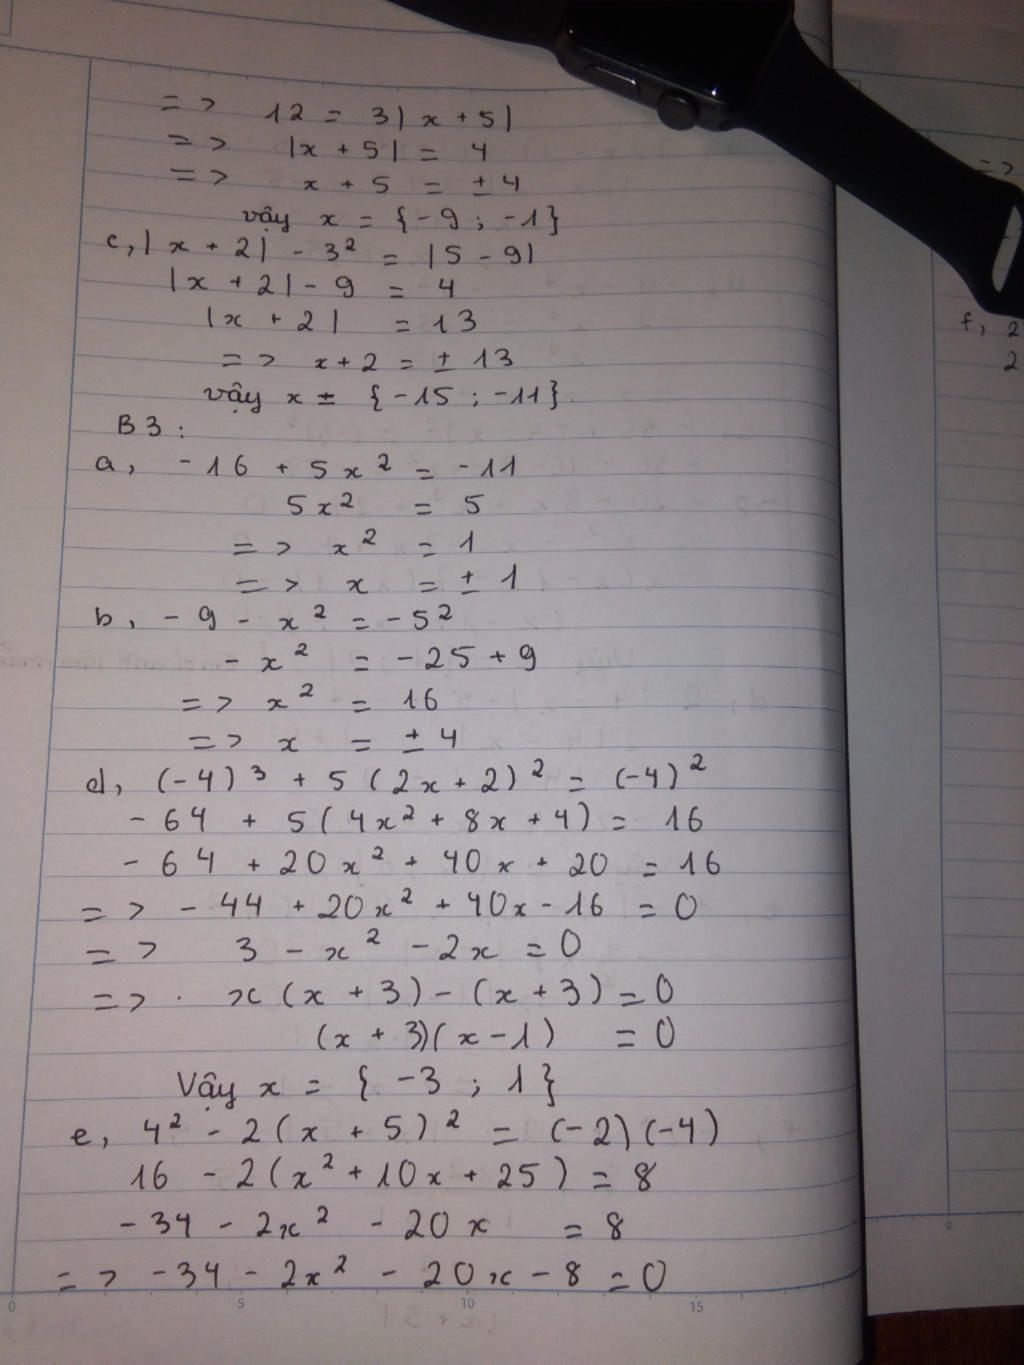 => 12 = 3|x + 5|
=> |x + 5| = 4
=> x + 5 = ± 4
vậy x = {-9 ; -1}
c, |x + 2| - 3² = |5 - 9|
|x + 2| - 9 = 4
|x + 2| = 13
=> x + 2 = ± 13
vậy x ± {-15 ; -11}
B3 :
a, -16 + 5x² = -11
5x² = 5
=> x² = 1
=> x = ± 1
b, -9 - x² = -5²
- x² = -25 + 9
=> x² = 16
=> x = ± 4
d, (-4)³ + 5(2x + 2)² = (-4)²
-64 + 5(4x² + 8x + 4) = 16
-64 + 20x² + 40x + 20 = 16
=> -44 + 20x² + 40x - 16 = 0
=> 3 - x² - 2x = 0
=> x(x + 3) - (x + 3) = 0
(x + 3)(x - 1) = 0
Vậy x = {-3 ; 1}
e, 4² - 2(x + 5)² = (-2)(-4)
16 - 2(x² + 10x + 25) = 8
-34 - 2x² - 20x = 8
=> -34 - 2x² - 20x - 8 = 0
0 5 10 15
=>
f, 2
2
0